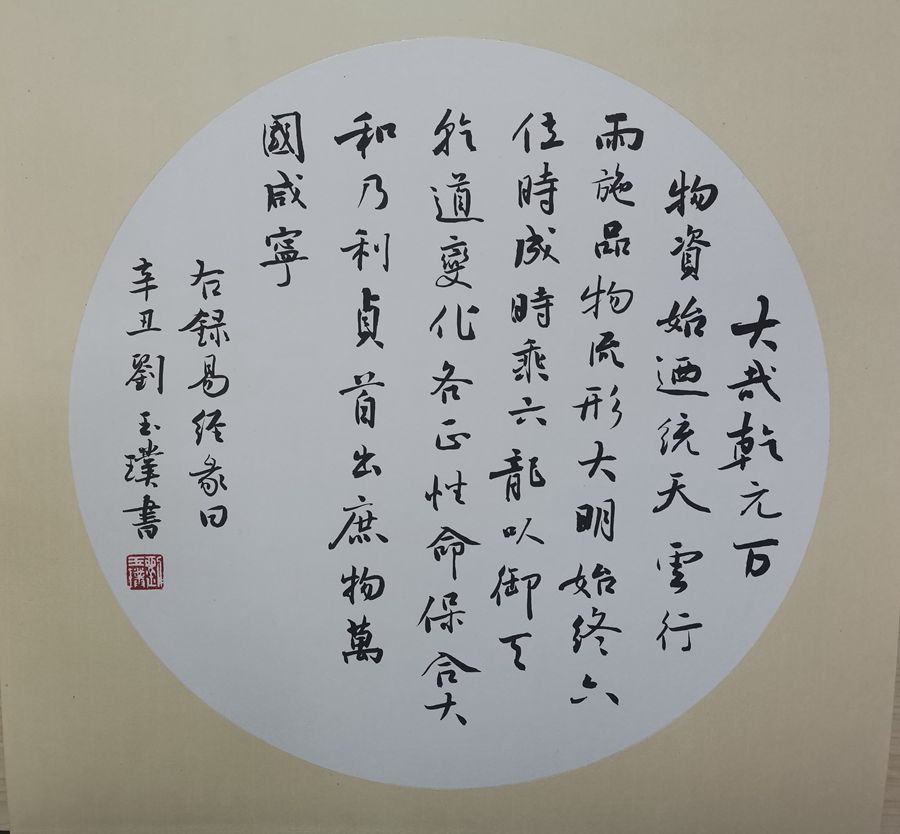 大哉乾元万
物資始迺統天雲行
雨施品物流形大明始終六
位時成時乘六龍以御天
乾道變化各正性命保合大
和乃利貞首出庶物萬
國咸寧
右録易經彖曰
辛丑劉玉璞書
劉玉璞